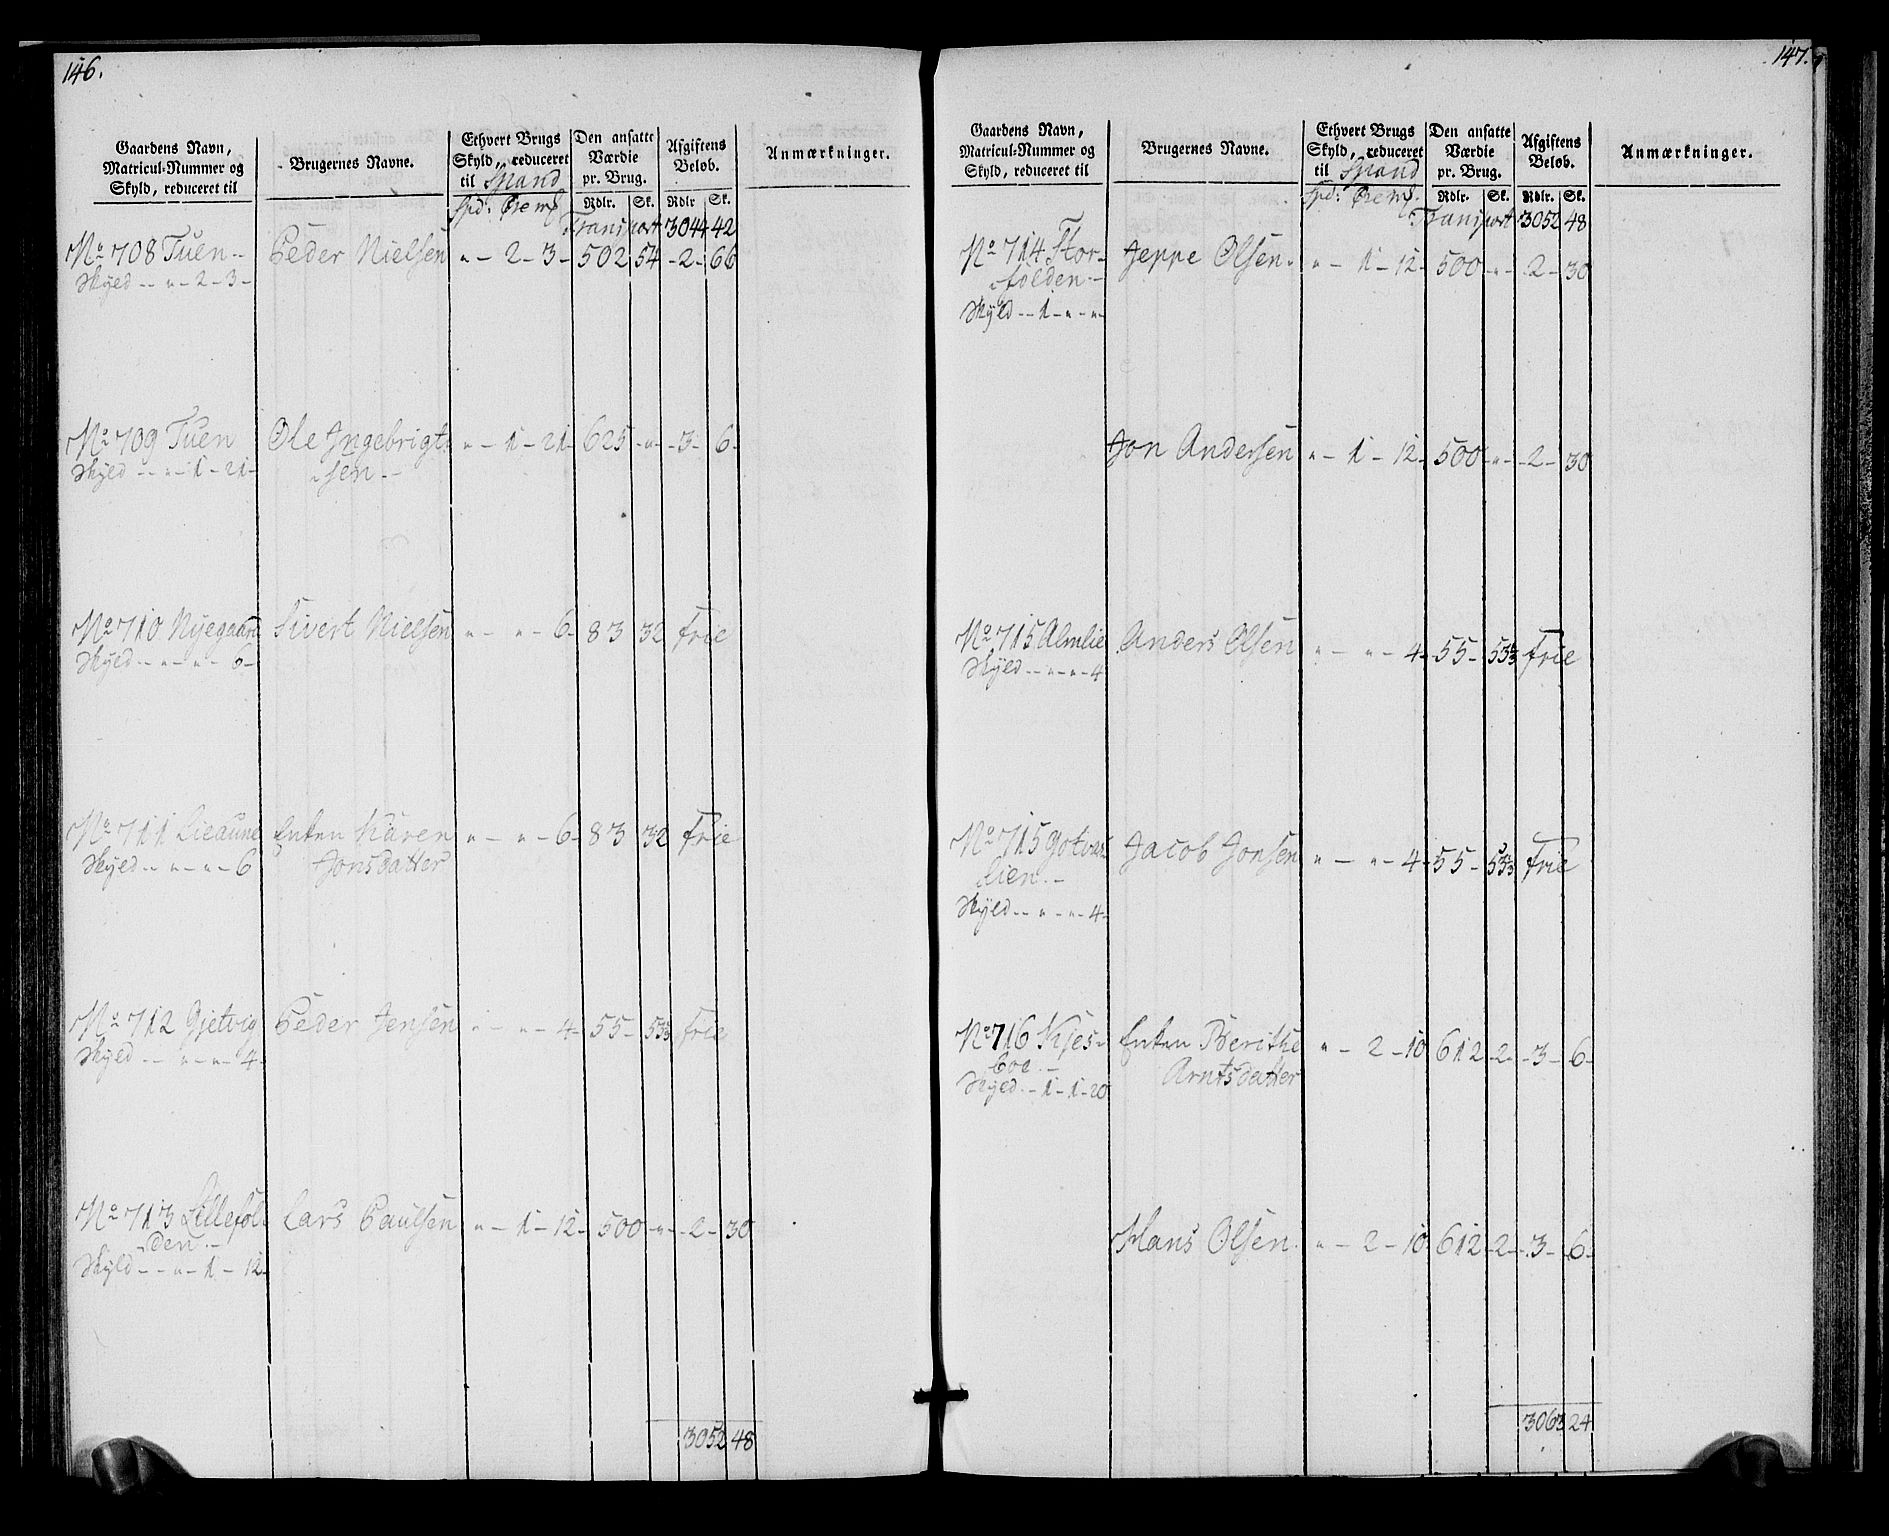 146.
Gaardens Navn,
Matricul-Nummer og
Skyld, reduceret til
Brugernes Navne.
Ethvert Brugs
Skyld, reduceret
til Spand
Den ansatte
Værdie
pr. Brug.
Afgiftens
Beløb.
Anmærkninger.
Rdlr. Sk. Rdlr Sk.
Spd: Øre mß
Transport 3044 42
No 708 Tuen Peder Nielsen " - 2 - 3 - 502 54 - 2 - 66
Skyld - - " - 2 - 3 -
No 709 Tuen Ole Ingebrigt- " - 1 - 21 - 625 - " - 3 - 6 -
Skyld - - " - 1 - 21 - sen -
No 710 Nyegaard Sivert Nielsen " - " - 6 - 83 32 Frie
Skyld - - " - " - 6 -
No 711 Lieaune Enken Karen " - " - 6 - 83 32 Frie
Skyld - - " - " - 6 Jonsdatter
No 712 Gjetvig Peder Jensen " - " - 4 - 55 - 53⅓ Frie
Skyld - - " - " - 4 -
No 713 Lillefol- Lars Paulsen " - 1 - 12 - 500 - " - 2 - 30
den -
Skyld - - " - 1 - 12 -
3052 48
147.
Gaardens Navn,
Matricul-Nummer og
Skyld, reduceret til
Brugernes Navne.
Ethvert Brugs
Skyld, reduceret
til Spand
Den ansatte
Værdie
pr. Brug.
Afgiftens
Beløb.
Anmærkninger.
Rdlr. Sk. Rdlr. Sk.
Spd: Øre mß.
Transport 3052 48
No 714 Stor- Jeppe Olsen. " - 1 - 12 - 500 - " - 2 - 30
folden -
Skyld - - 1 - " - "
Jon Andersen " - 1 - 12 - 500 - " - 2 - 30
No 715 Almlie Anders Olsen " - " - 4 - 55 - 53⅓ Frie
Skyld - - " - " - 4
No 715 Gotvas- Jacob Jonsen " - " - 4 - 55 - 53⅓ Frie
Lien -
Skyld - - " - " - 4 -
No 716 Kjes- Enken Berithe " - 2 - 10 612 - 2 - 3 - 6 -
boe - Arntsdatter
Skyld - 1 - 1 - 20
Hans Olsen. " - 2 - 10 612 - 2 - 3 - 6 -
3063 24